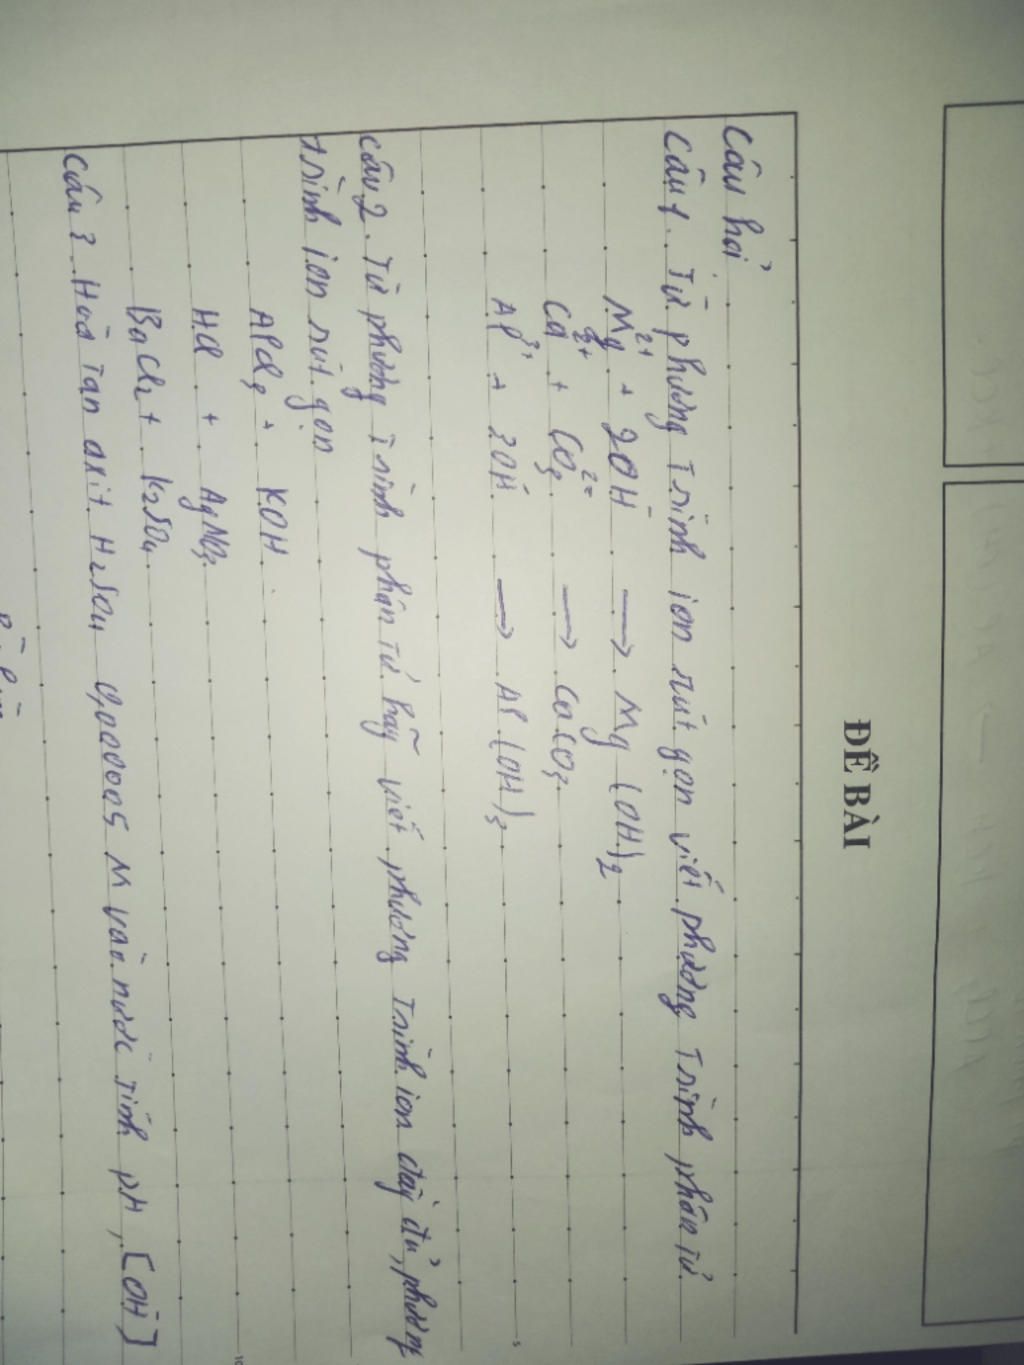 ĐỀ BÀI
Câu hỏi
Câu 1. Từ phương trình ion rút gọn viết phương trình phân tử
Mg²⁺ + 2OH⁻ → Mg(OH)₂
Ca²⁺ + CO₃²⁻ → CaCO₃
Al³⁺ + 3OH⁻ → Al(OH)₃
Câu 2. Từ phương trình phân tử hãy viết phương trình ion đầy đủ, phương
trình ion rút gọn
AlCl₃ + KOH
HCl + AgNO₃
BaCl₂ + K₂SO₄
Câu 3 Hoà tan axit H₂SO₄ 0,00005 M vào nước tính pH, [OH⁻]
5
10